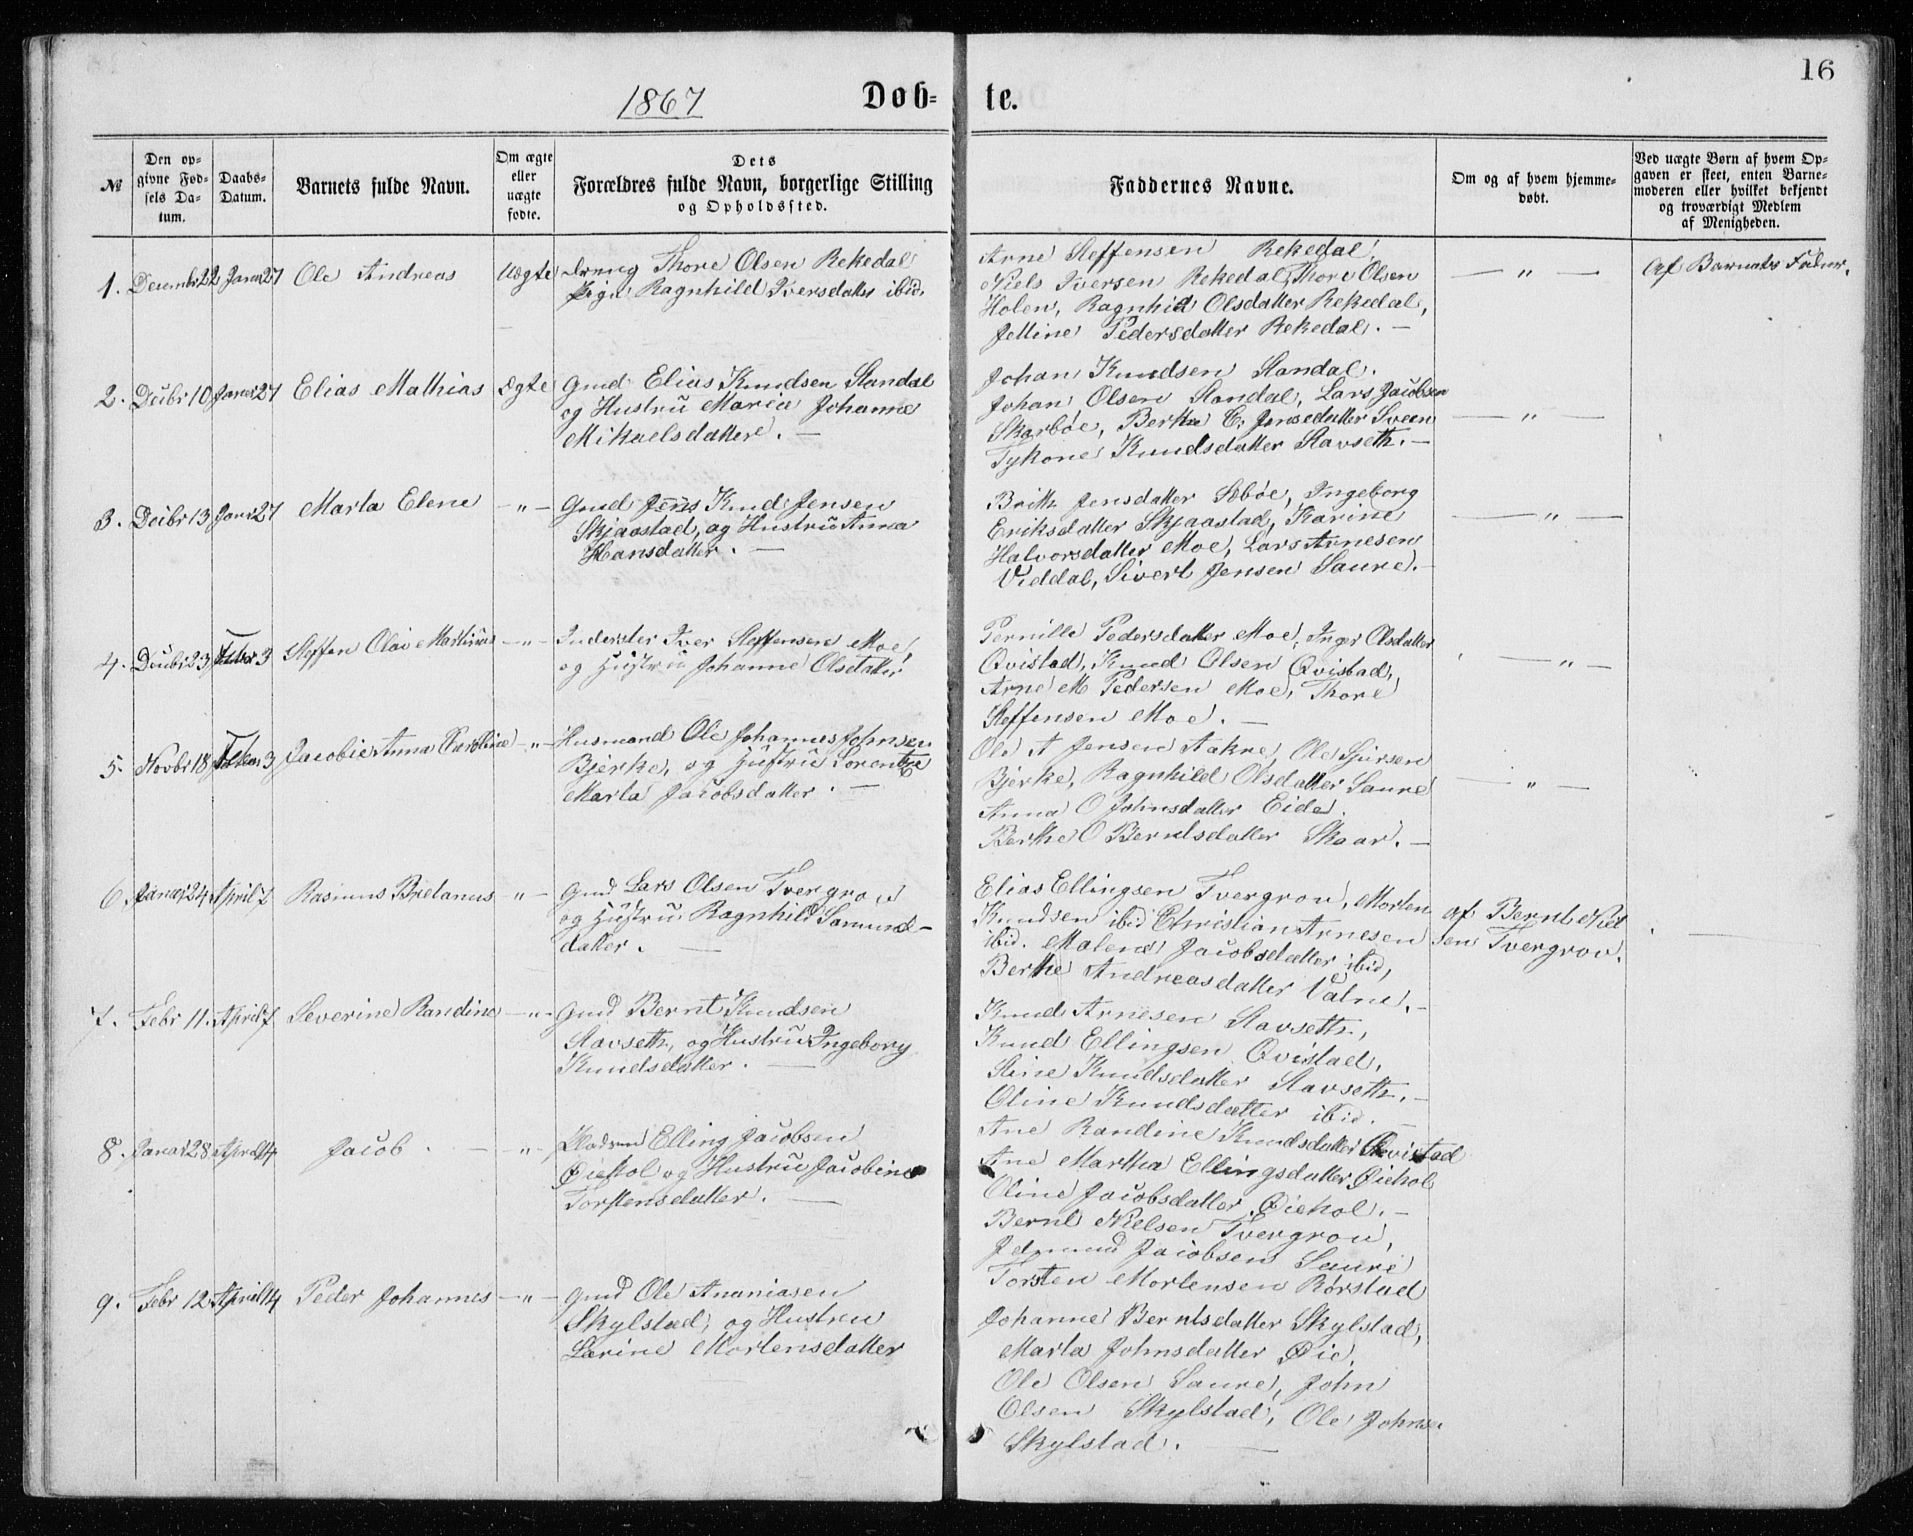 16
1867 Døb- te.
№
Den op-
givne Fød-
sels Da-
tum.
Daabs-
Datum.
Barnets fulde Navn.
Om ægte
eller
uægte
fødte.
Dets
Forældres fulde Navn, borgerlige Stilling
og Opholdssted.
Faddernes Navne.
Om og af hvem hjemme-
døbt.
Ved uægte Børn af hvem Op-
gaven er skeet, enten Barne-
moderen eller hvilket bekjendt
og troværdigt Medlem
af Menigheden.
1. Decembr 22 Janar 27 Ole Andreas Uægte Ung Thore Olsen Rekedal
Pige Ragnhild Iversdatter ibid.
Arne Steffensen Rekedal,
Niels Iversen Rekedal, Thore Olsen
Holen, Ragnhild Olsdatter Rekedal,
Jettine Pedersdatter Rekedal. —
— " —
Af Barnets Fader.
2. Decbr 10 Janar 27 Elias Mathias Ægte Gmd Elias Knudsen Standal
og Hustru Maria Johanne
Mikaelsdatter. —
Johan Knudsen Standal.
Johan Olsen Standal, Lars Jacobsen
Skarbøe, Berthe E. Jensedatter Sveen
Tykone Knudsdatter Stavseth. —
— " —
3. Decbr 13 Janr 27 Marta Elene — " — Gmd Jens Knud Jensen
Skjaastad, og Hustru Anna
Hansdatter. —
Brith Jensdatter Sæbøe, Ingeborg
Eriksdatter Skjaastad, Karine
Halvorsdatter Moe, Lars Arnesen
Viddal, Sivert Jensen Saure. —
— " —
4. Decbr 23 Febr 3 Steffen Olai Martinus — " — Inderster Iver Steffensen Moe,
og Hustru Johanne Olsdatter
Pernille Pedersdatter Moe, Inger Olsdatter
Qvistad, Knud Olsen Qvistad,
Arne M Pedersen Moe, Thore
Steffensen Moe. —
— " —
5. Novbr 18 Febr 3 Jacobie Anna Caroline — " — Husmand Ole Johannes Johnsen
Bjerke, og Hustru Sorentze
Marta Jacobsdatter. —
Ole A Jensen Aakre, Ole Sjursen
Bjerke, Ragnhild Olsdatter Saure
Anna O Johnsdatter Eide.
Berthe O Berntsdatter Skaar. —
— " —
6. Janar 24 April 7 Rasmus Bretanus — " — Gmd Lars Olsen Tvergrov
og Hustru Ragnhild Samund-
datter. —
Elias Ellingsen Tvergrov, Morten
Knudsen ibid Christian Arnesen
ibid. Malene Jacobsdatter ibid,
Berthe Andreasdatter Vatne. —
af Bernt Niel
sen Tvergrov.
—
7. Febr 11. April 7 Severine Randine — " — Gmd Bernt Knudsen
Stavseth, og Hustru Ingeborg
Knudsdatter. —
Knud Arnesen Stavseth,
Knud Ellingsen Qvistad,
Stine Knudsdatter Stavseth. —
Oline Knudsdatter ibid. —
Ane Randine Knudsdatter Qvistad
8. Janar 28 April 14 Jacob — " — Elling Jacobsen
Øiehol og Hustru Jacobine
Torstensdatter. —
Ane Martha Ellingsdatter Øiehol
Oline Jacobsdatter Øiehol. —
Bernt Nielsen Tvergrov,
Jacobsen Saure
Torsten Mortensen Rørstad
9. Febr 12 April 14 Peder Johannes — " — Gmd Ole Ananiasen
Skylstad, og Hustru
Larine Mortensdatter
Johanne Berntsdatter Skylstad,
Marta Johnsdatter Øie,
Ole Olsen Saure, John
Olsen Skylstad, Ole Johnsen
Skylstad. —